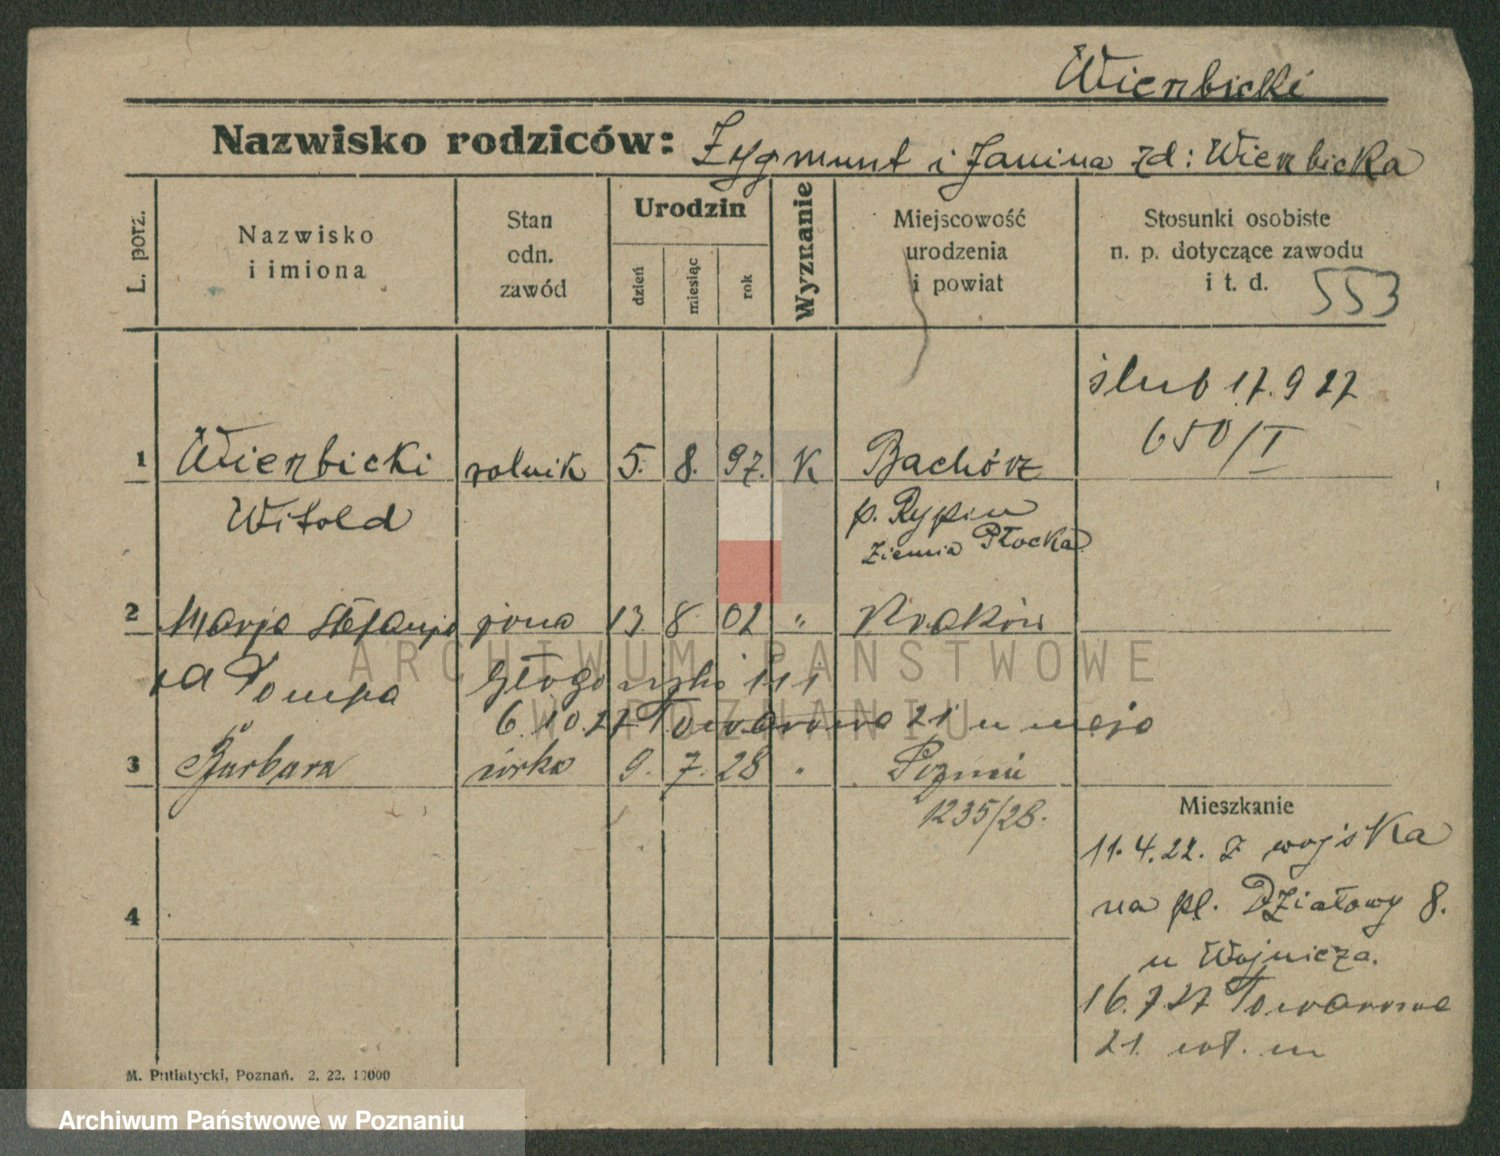 Wierzbicki
Nazwisko rodziców: Zygmunt i Janina zd: Wierzbicka
L. porz.
Nazwisko
i imiona
Stan
odn.
zawód
Urodzin
dzień
miesiąc
rok
Wyznanie
Miejscowość
urodzenia
i powiat
Stosunki osobiste
n. p. dotyczące zawodu
i t. d. 553
ślub 17.9 27
650/I
1 Wierzbicki rolnik 5. 8. 97. K Bachórz
Witold p. Rypin
Ziemia Płocka
2 Marja Stefanja żona 13 8 02 " Kraków
zd Pompa
6.10.27 Towarowa 21 u męża
3 Barbara córka 9. 7. 28 " Poznań
1235/28.
Mieszkanie
11.4.22. z wojska
na pl. Działowy 8.
u Wojnicza.
16.7 27 Towarowa
21. u
4
M. Putiatycki, Poznań. 2. 22. 10000
ARCHIWUM PAŃSTWOWE
W POZNANIU
Archiwum Państwowe w Poznaniu